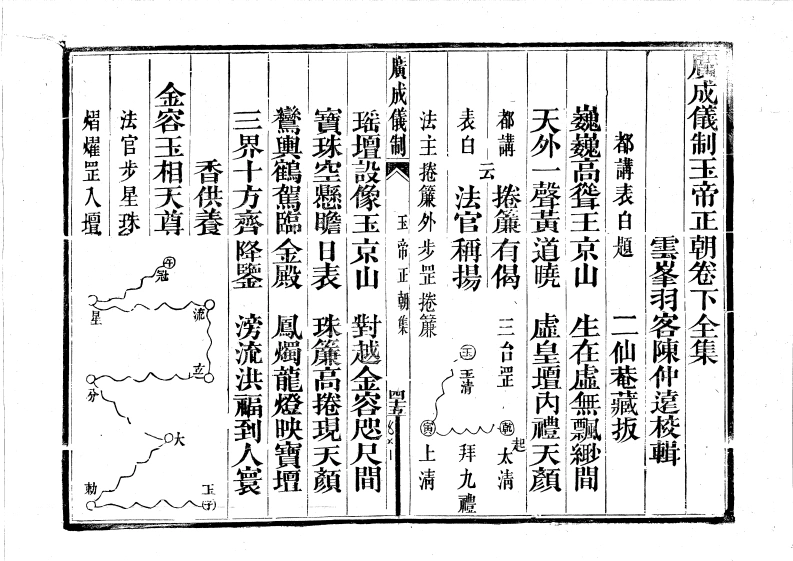 廣成儀制玉帝正朝卷下全集
雲峯羽客陳仲遠校輯
都講表白題 二仙菴藏板
巍巍高聳玉京山 生在虛無飄緲間
天外一聲黃道曉 虛皇壇內禮天顏
都講 捲簾有偈 三台罡 起 太清
云
表白 法官稱揚 玉清 拜九禮
法主捲簾外步罡捲簾 上清
廣成儀制 玉帝正朝集
瑤壇設像玉京山 對越金容咫尺間
寶珠空懸瞻日表 珠簾高捲現天顏
鸞輿鶴駕臨金殿 鳳燭龍燈映寶壇
三界十方齊降鑒 滂流洪福到人寰
香供養
金容玉相天尊
法官步星珠
熠燿罡入壇
冠
流
星
玄
分
大
玉
勅